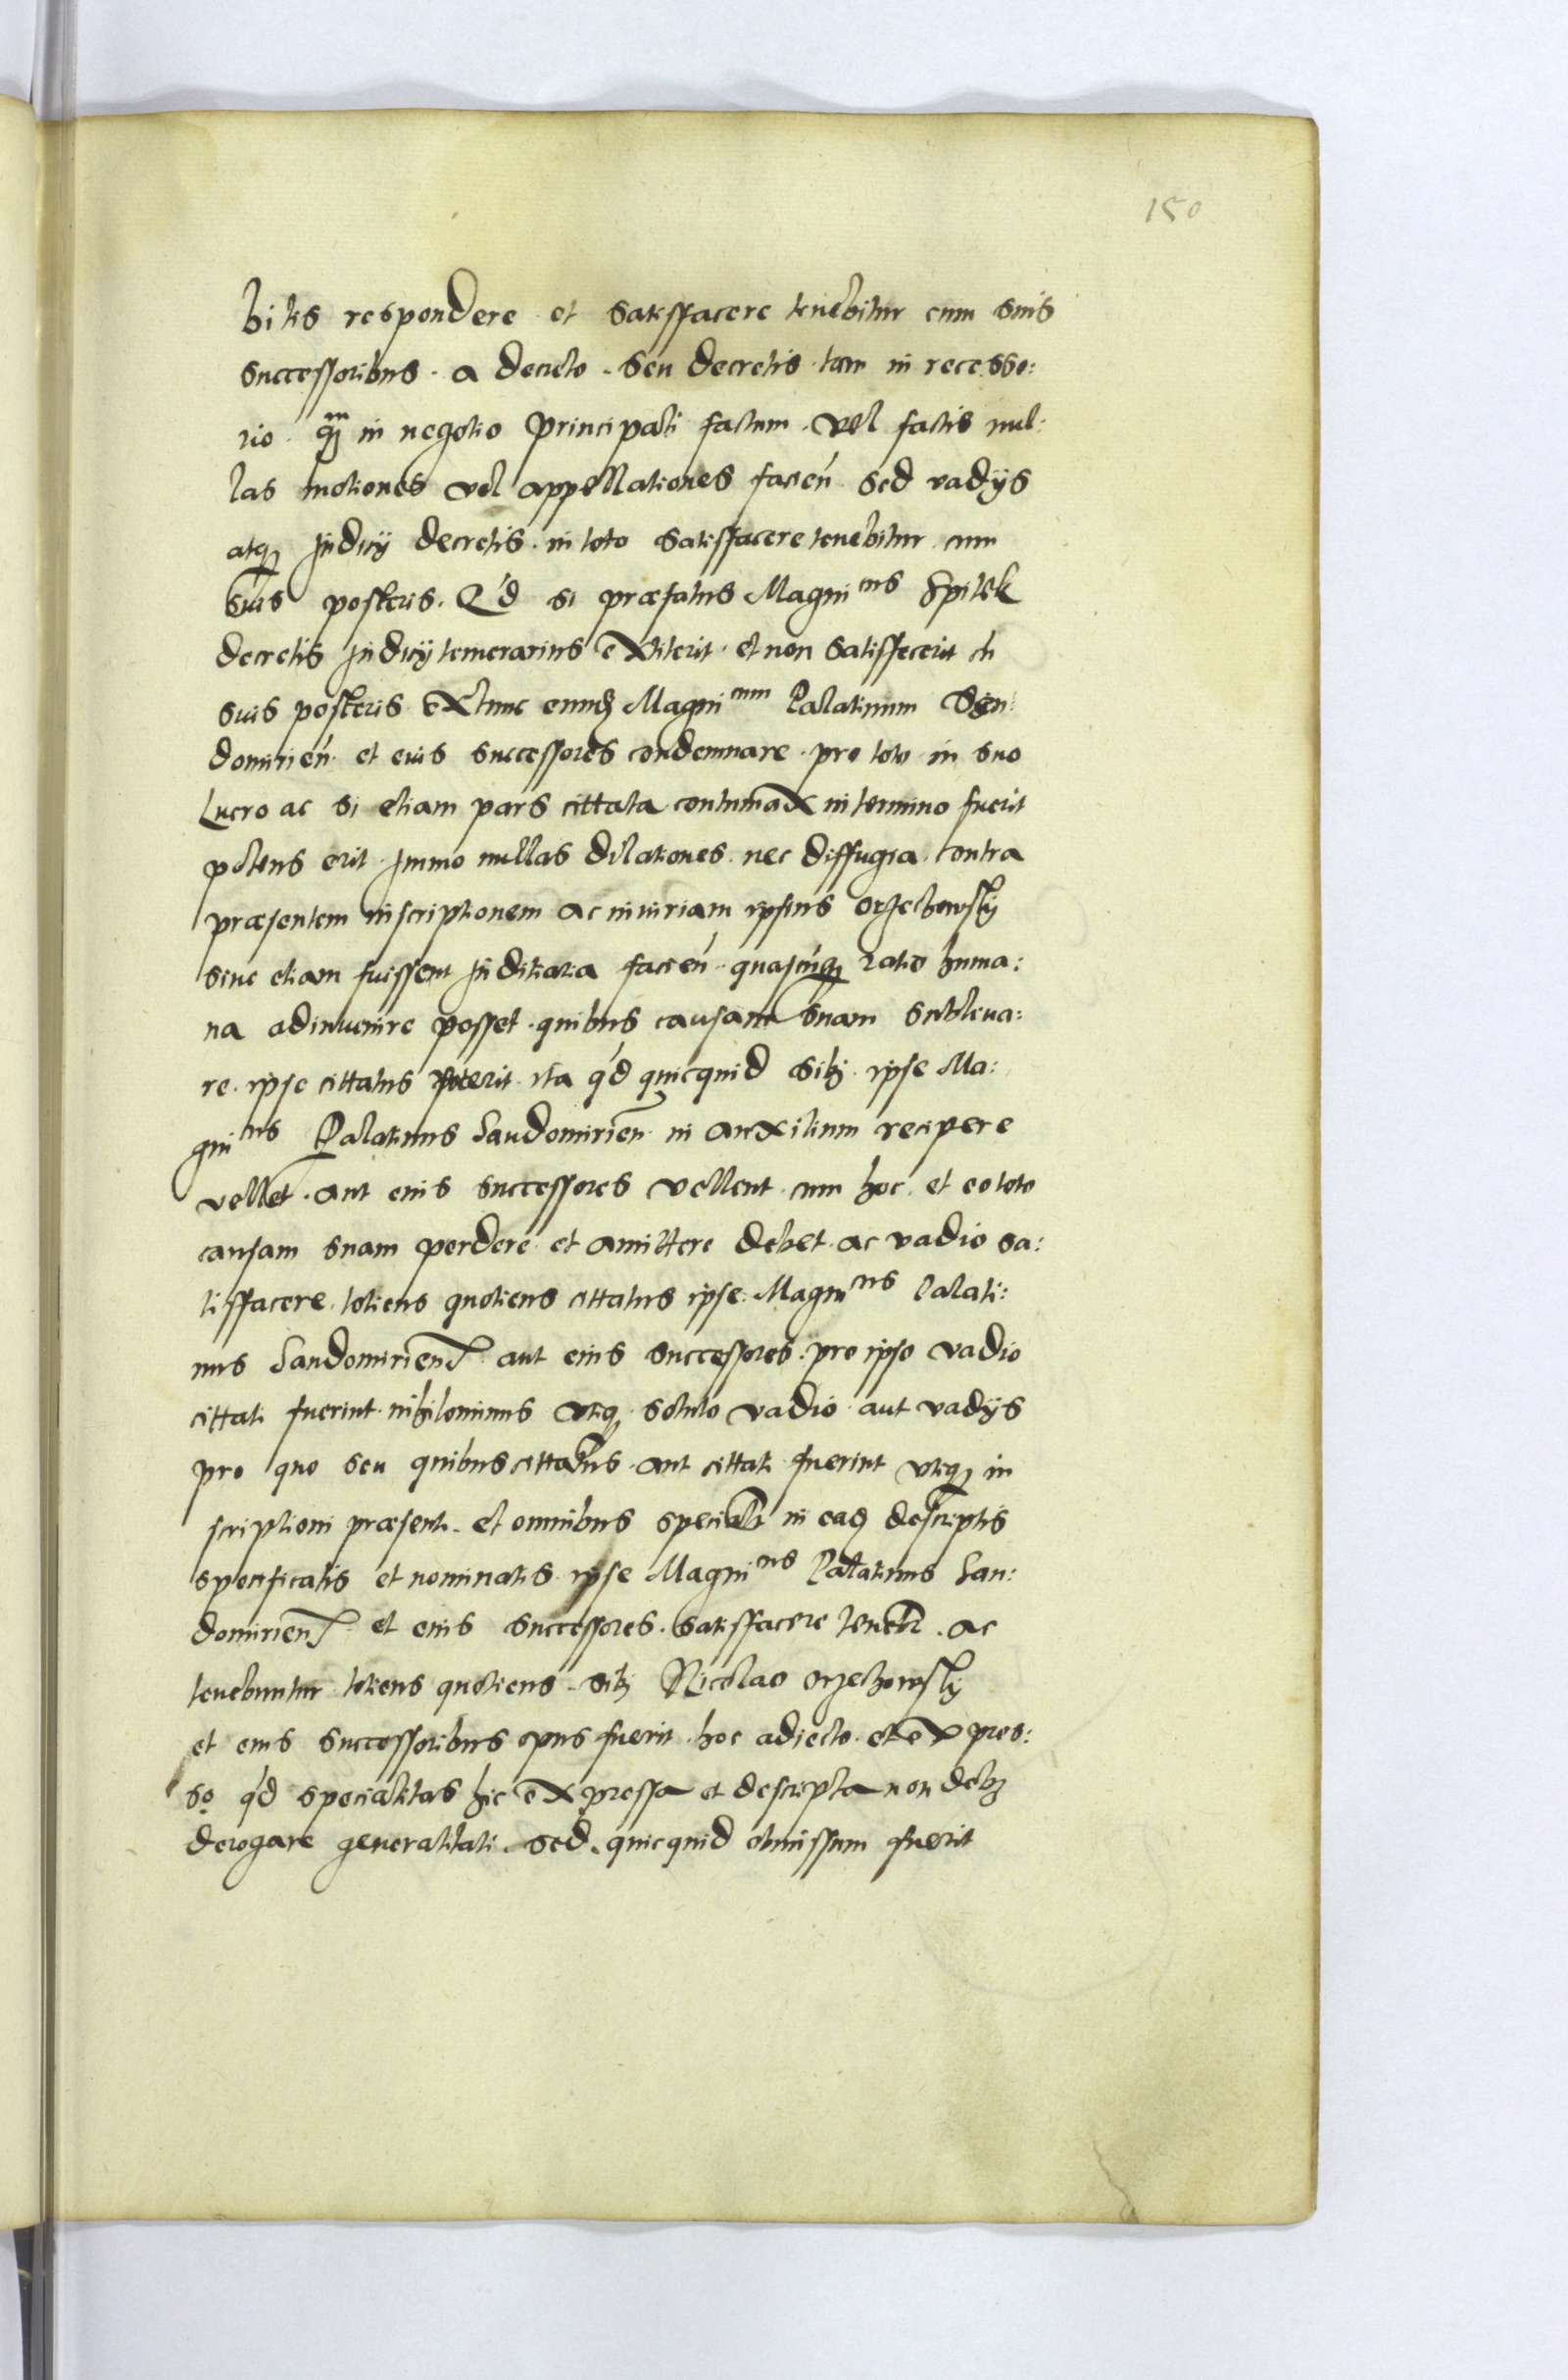 150
bitis respondere et satisffacere tenebitur cum suis
successoribus. a decreto. seu decretis. tam in recesso:
rio. qm̄ in negotio principali factum. vel factis nul:
las motiones vel appellationes facień sed vadÿs
atqȝ Judicÿ decretis. in toto satisffacere tenebitur cum
suis posteris. Q'd si præfatus Magnicus Spitek
decretis Judicÿ temerarius extiterit. et non satisffecerit cū
suis posteris extunc eundȝ Magnicum Palatinum San:
domirień et eius successores condemnare. pro toto in suo
Lucro ac si etiam pars cittata contumax in termino fuerit
potens erit. Immo nullas dilationes. nec diffugia contra
præsentem inscriptionem ac iniuriam ipsius Orzechowskÿ
siue etiam fuissent Juditiaria facień. quascunqȝ ratio huma:
na adinuenire posset. quibus causam suam subleua:
re. ipse cittatus poterit. ita q'd quicquid sibj ipse Ma:
gnicus Palatinus Sandomirień in auxilium recipere
vellet. aut eius successores vellent. cum hoc et eo toto
causam suam perdere et amittere debet. ac vadio sa:
tisffacere. totiens quotiens cittatus ipse Magnicus Palati:
nus Sandomirien̄ aut eius successores. pro ipso vadio
cittati fuerint. nihilominus vtiqȝ soluto vadio aut vadÿs
pro quo seu quibus cittatus aut cittati fuerint vtiqȝ in
scriptioni præsenti. et omnibus specialr̄ in eaqȝ descriptis
specificatis et nominatis ipse Magnicus Palatinus San:
domirien̄ et eius successores. satisffacere tenetr̄. ac
tenebuntur totiens quotiens. sibj Nicolao Orzechowskÿ
et eius successoribus opus fuerit. hoc adiecto et expres:
so. q'd specialitas hic expressa et descripta non debȝ
derogare generalitati. sed. quicquid obmissum fuerit